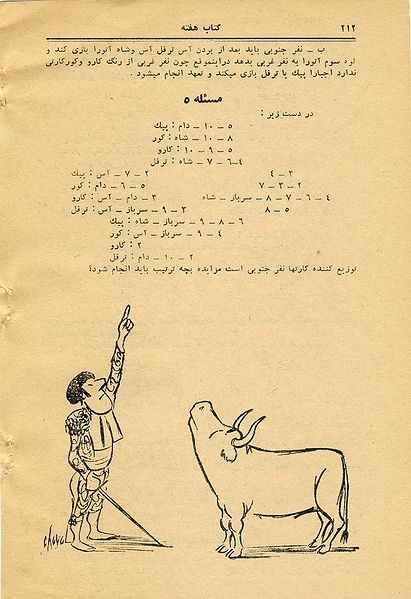 ۲۱۲
کتاب هفته
ب ـ نفر جنوبی باید بعد از بردن آس ترفل آس وشاه آتورا بازی کند و
لوه سوم آتورا به نفر غربی بدهد دراینموقع چون نفر غربی از رنگ کارو وکورکارتی
ندارد اجبارا پیك یا ترفل بازی میکند و تعهد انجام میشود .
مسئله ۵
در دست زیر :
۵ ـ ۱۰ ـ دام : پیك
۸ ـ ۱۰ ـ شاه : کور
۵ ـ ۹ ـ ۱۰ : کارو
۴ـ۶ ـ ۷ ـ شاه : ترفل
۳ ـ ۴
۲ ـ ۷ ـ آس : پیك
۲ ـ ۳ ـ ۷
۵ ـ ۶ ـ دام : کور
۴ ـ ۶ ـ ۷ ـ ۸ ـ سرباز ـ شاه
۳ ـ دام ـ آس : کارو
۵ ـ ۸
۳ ـ ۹ ـ سرباز ـ آس : ترفل
۶ ـ ۸ ـ ۹ ـ سرباز ـ شاه : پیك
۴ ـ ۹ ـ سرباز ـ آس : کور
۲ : کارو
۲ ـ ۱۰ ـ دام : ترفل
توزیع کننده کارتها نفر جنوبی است مزایده بچه ترتیب باید انجام شود؟